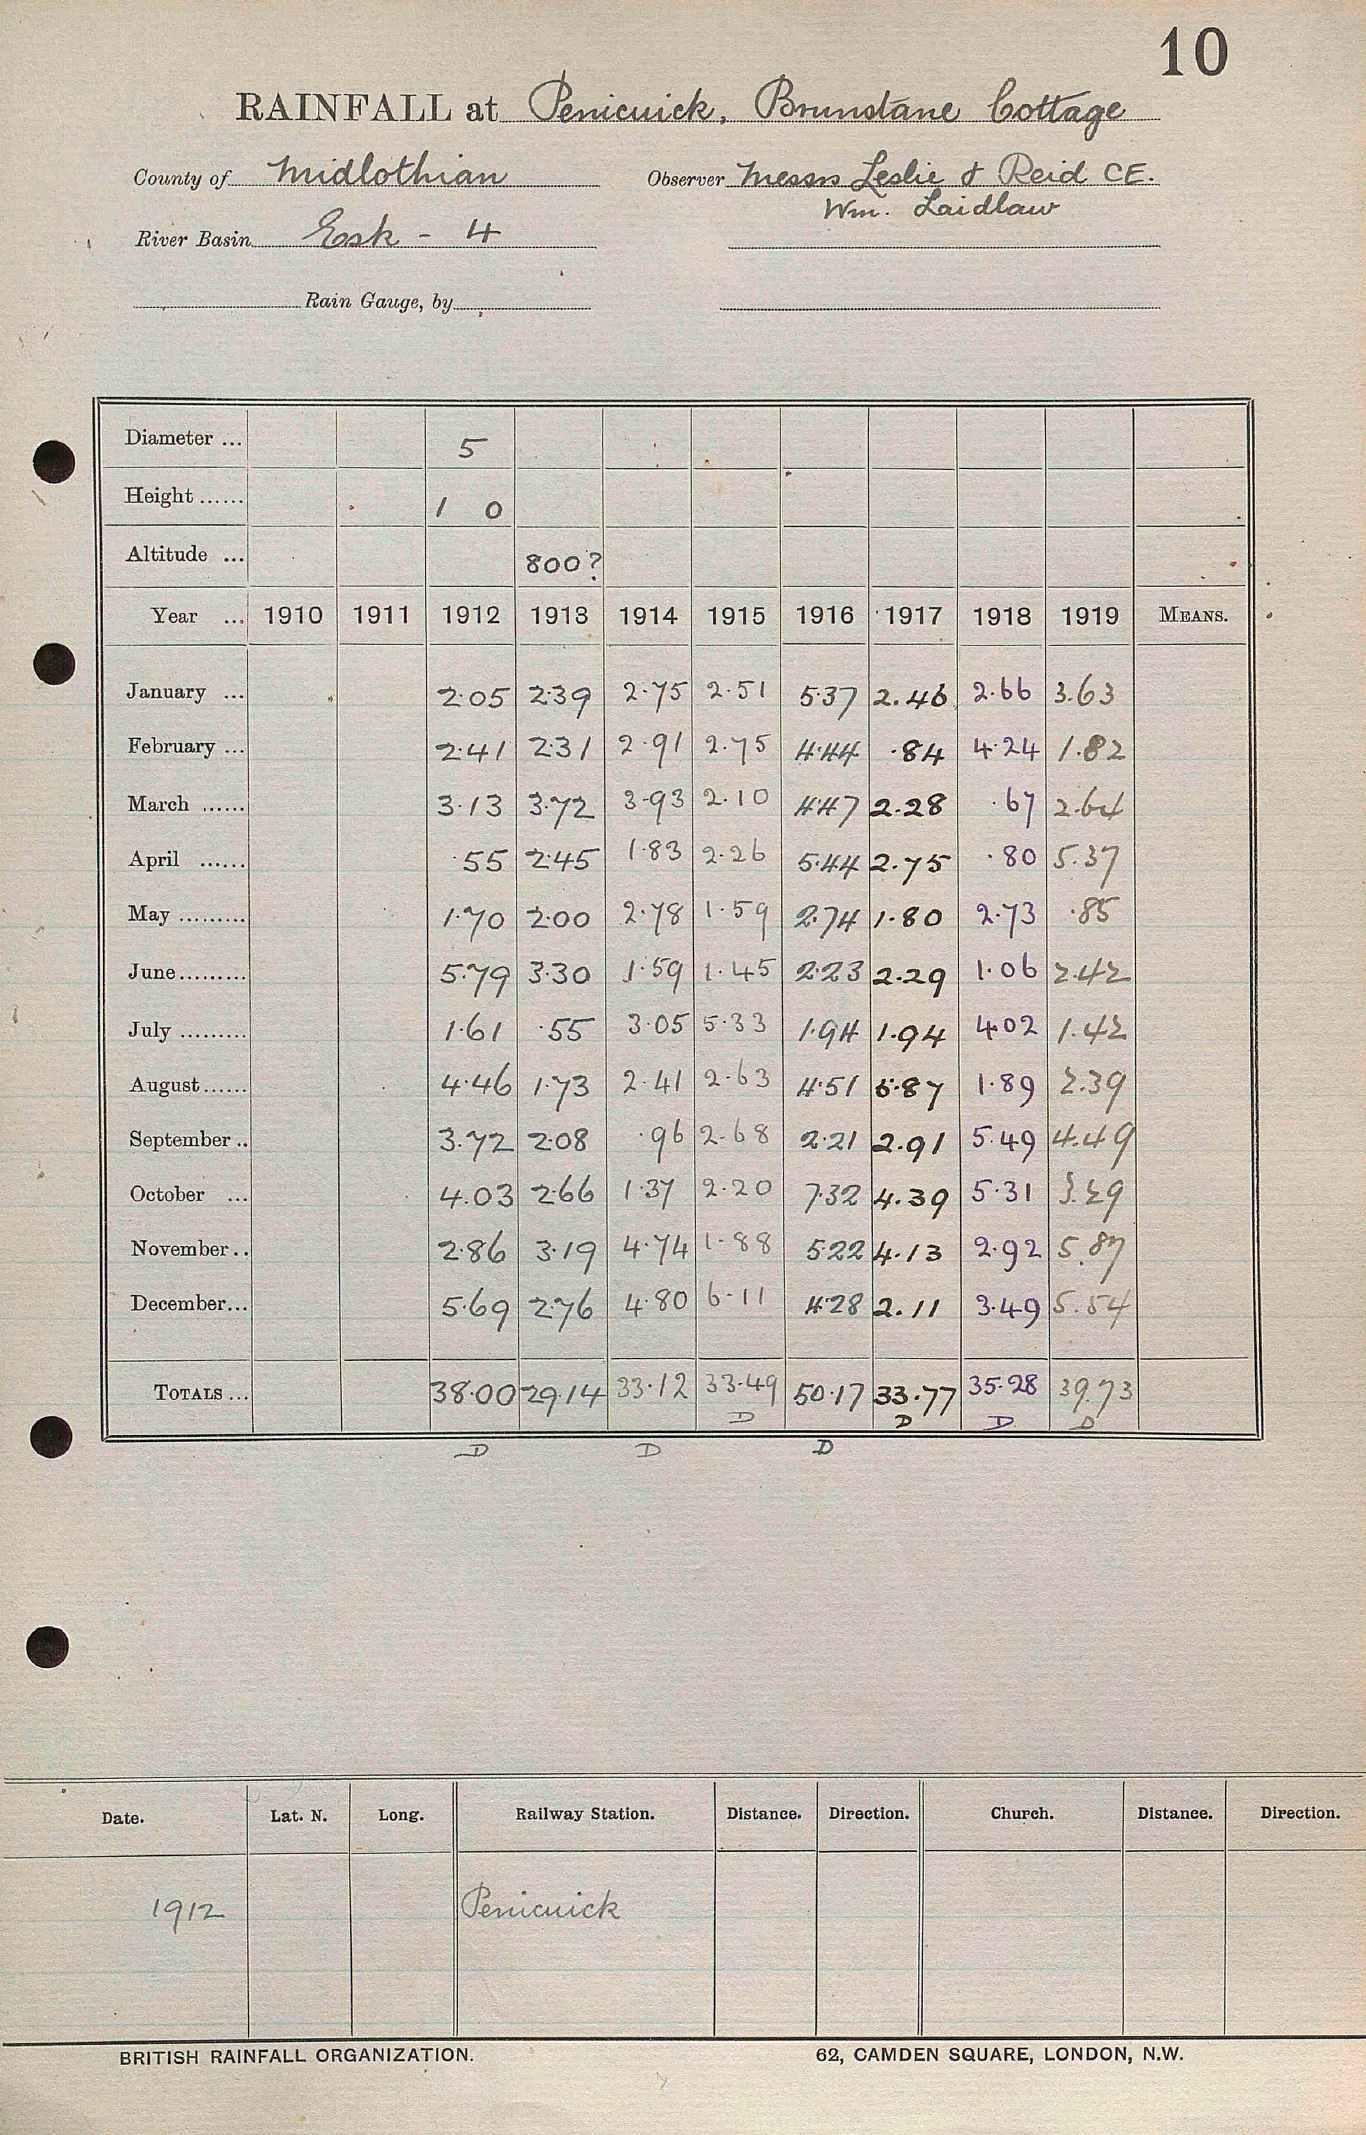 10
RAINFALL at Penicuick, Brunstane Cottage
County of Midlothian Observer Messrs Leslie & Reid CE.
Wm. Laidlaw
River Basin Esk - 4
Rain Gauge, by
Diameter ... 5
Height ...... 1 0
Altitude ... 800?
Year ... 1910 1911 1912 1913 1914 1915 1916 1917 1918 1919 MEANS.
January ... 2.05 2.39 2.75 2.51 5.37 2.46 2.66 3.63
February ... 2.41 2.31 2.91 2.75 4.44 .84 4.24 1.82
March ...... 3.13 3.72 3.93 2.10 4.47 2.28 .67 2.64
April ...... .55 2.45 1.83 2.26 5.44 2.75 .80 5.37
May ......... 1.70 2.00 2.78 1.59 2.74 1.80 2.73 .85
June......... 5.79 3.30 1.59 1.45 2.23 2.29 1.06 2.42
July ......... 1.61 .55 3.05 5.33 1.94 1.94 4.02 1.42
August...... 4.46 1.73 2.41 2.63 4.51 5.87 1.89 2.39
September .. 3.72 2.08 .96 2.68 2.21 2.91 5.49 4.49
October ... 4.03 2.66 1.37 2.20 7.32 4.39 5.31 3.29
November .. 2.86 3.19 4.74 1.88 5.22 4.13 2.92 5.87
December... 5.69 2.76 4.80 6.11 4.28 2.11 3.49 5.54
TOTALS ... 38.00 29.14 33.12 33.49 50.17 33.77 35.28 39.73
D D D D
D D D
Date. Lat. N. Long. Railway Station. Distance. Direction. Church. Distance. Direction.
1912 Penicuick
BRITISH RAINFALL ORGANIZATION. 62, CAMDEN SQUARE, LONDON, N.W.